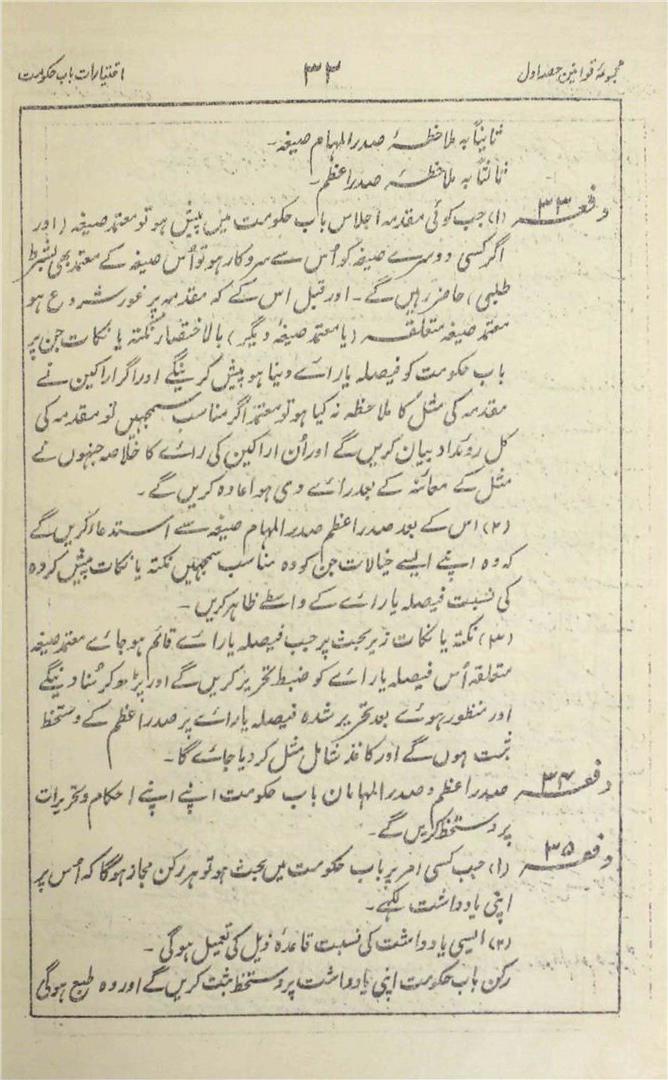 مجموعۂ قوانین حصہ اول
۳۳
اختیارات باب حکومت
ثانیاً بہ ملاحظۂ صدر المہام صیغہ۔
ثالثاً بہ ملاحظۂ صدر اعظم۔
دفعہ ۳۳ (۱) جب کوئی مقدمہ اجلاس باب حکومت میں پیش ہو تو معتمد صیغہ (اور
اگر کسی دوسرے صیغہ کو اُس سے سروکار ہو تو اُس صیغہ کے معتمد بھی بشرط
طلبی) حاضر رہیں گے۔ اور قبل اس کے کہ مقدمہ پر غور شروع ہو
معتمد صیغہ متعلقہ (یا معتمد صیغۂ دیگر) بالاختصار نکتہ یا نکات جن پر
باب حکومت کو فیصلہ یا رائے دینا ہو پیش کرینگے اور اگر اراکین نے
مقدمہ کی مثل کا ملاحظہ نہ کیا ہو تو معتمد اگر مناسب سمجھیں تو مقدمہ کی
کل روئداد بیان کریں گے اور اُن اراکین کی رائے کا خلاصہ جنہوں نے
مثل کے معائنہ کے بعد رائے دی ہو اعادہ کریں گے۔
(۲) اس کے بعد صدر اعظم صدر المہام صیغہ سے استدعاء کریں گے
کہ وہ اپنے ایسے خیالات جن کو وہ مناسب سمجہیں نکتہ یا نکات پیش کردہ
کی نسبت فیصلہ یا رائے کے واسطے ظاہر کریں۔
(۳) نکتہ یا نکات زیر بحث پر جب فیصلہ یا رائے قائم ہو جائے معتمد صیغہ
متعلقہ اُس فیصلہ یا رائے کو ضبط تحریر کریں گے اور پڑھکر سُنا دینگے
اور منظور ہوئے بعد تحریر شدہ فیصلہ یا رائے پر صدر اعظم کے دستخط
ثبت ہوں گے اور کاغذ شامل مثل کر دیا جائے گا۔
دفعہ ۳۴ صدر اعظم و صدر المہامان باب حکومت اپنے اپنے احکام و تحریرات
پر دستخط کریں گے۔
دفعہ ۳۵ (۱) جب کسی امر پر باب حکومت میں بحث ہو تو ہر رکن مجاز ہوگا کہ اُس پر
اپنی یادداشت لکہے۔
(۲) ایسی یادداشت کی نسبت قاعدۂ ذیل کی تعمیل ہوگی۔
رکن باب حکومت اپنی یادداشت پر دستخط ثبت کریں گے اور وہ طبع ہوگی